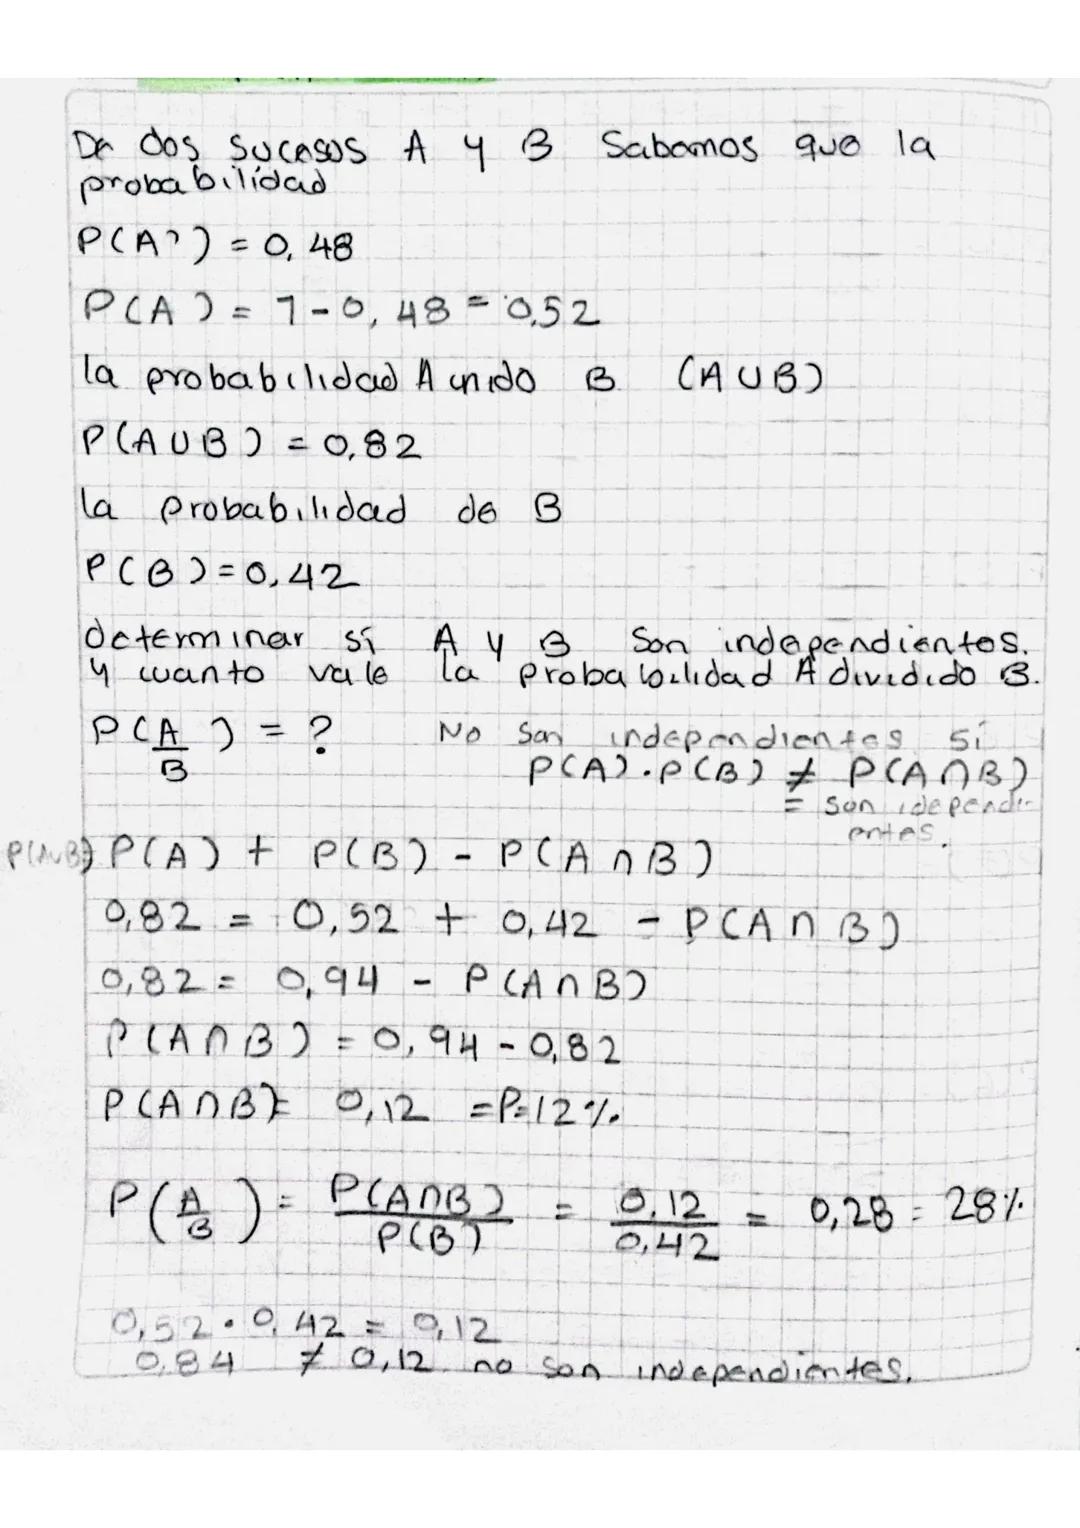 De dos sucesos A y B Sabemos que la
probabilidad
P(A') = 0,48
P(A) = 1-0,48 = 0,52
la probabilidad A unido B (A∪B)
P(A∪B) = 0,82
la probabilidad de B
P(B)=0,42
determinar si A y B Son independientes.
y cuanto vale la probabilidad A dividido B.
P(A/B) = ? No son independientes si
P(A).P(B) ≠ P(A∩B)
= son idependi-
entes.
P(A∪B)= P(A) + P(B) - P(A∩B)
0,82 = 0,52 + 0,42 - P(A∩B)
0,82 = 0,94 - P(A∩B)
P(A∩B) = 0,94 - 0,82
P(A∩B)= 0,12 =P=12%
P(A/B) = P(A∩B)/P(B) = 0,12/0,42 = 0,28 = 28%
0,52 · 0,42 = 0,12
0,84 ≠ 0,12 no son independientes.